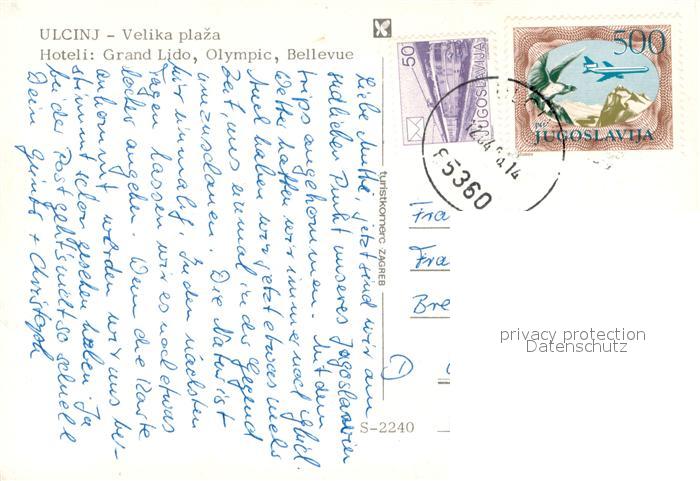 ULCINJ – Velika plaža
Hoteli: Grand Lido, Olympic, Bellevue
Liebe Mutti, jetzt sind wir am
südlichen Punkt unseres Jugoslavien
trips angekommen. Mit dem
Wetter hatten wir immer noch Glück.
Auch haben wir jetzt etwas mehr
Zeit, uns einmal in der Gegend
umzuschauen. Die Natur ist
hier einmalig. In den nächsten
Tagen lassen wir es noch etwas
locker angehen. Wenn die Karte
ankommt werden wir uns be-
stimmt schon gesehen haben. Ja
bei der Post geht's nicht so schnell
Dein Günter + Christoph
turistkomerc ZAGREB
S-2240
50
JUGOSLAVIJA
500
PTT
JUGOSLAVIJA
85360
Fra
Fra
Bre
privacy protection
Datenschutz